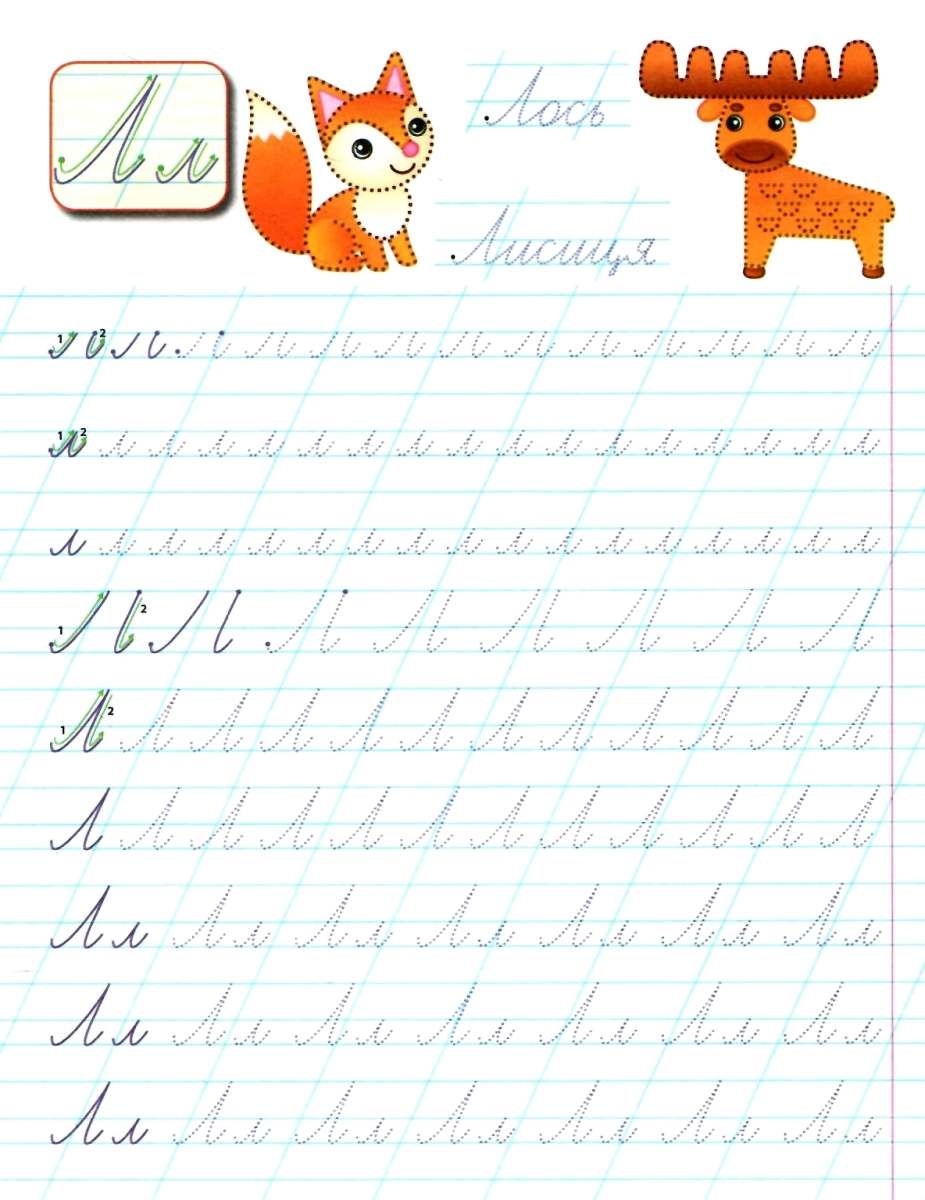 Л л
Лось
Лисиця
1 2 л л л л л л л л л л л
1 2 л л л л л л л л л л л л л л л л л
л л л л л л л л л л л л л л л л л
1 2 Л Л Л Л Л Л
1 2 Л Л Л Л Л Л Л Л Л Л Л Л
Л Л Л Л Л Л Л Л Л Л Л Л
Л л Л л Л л Л л Л л Л л Л л
Л л Л л Л л Л л Л л Л л Л л
Л л Л л Л л Л л Л л Л л Л л